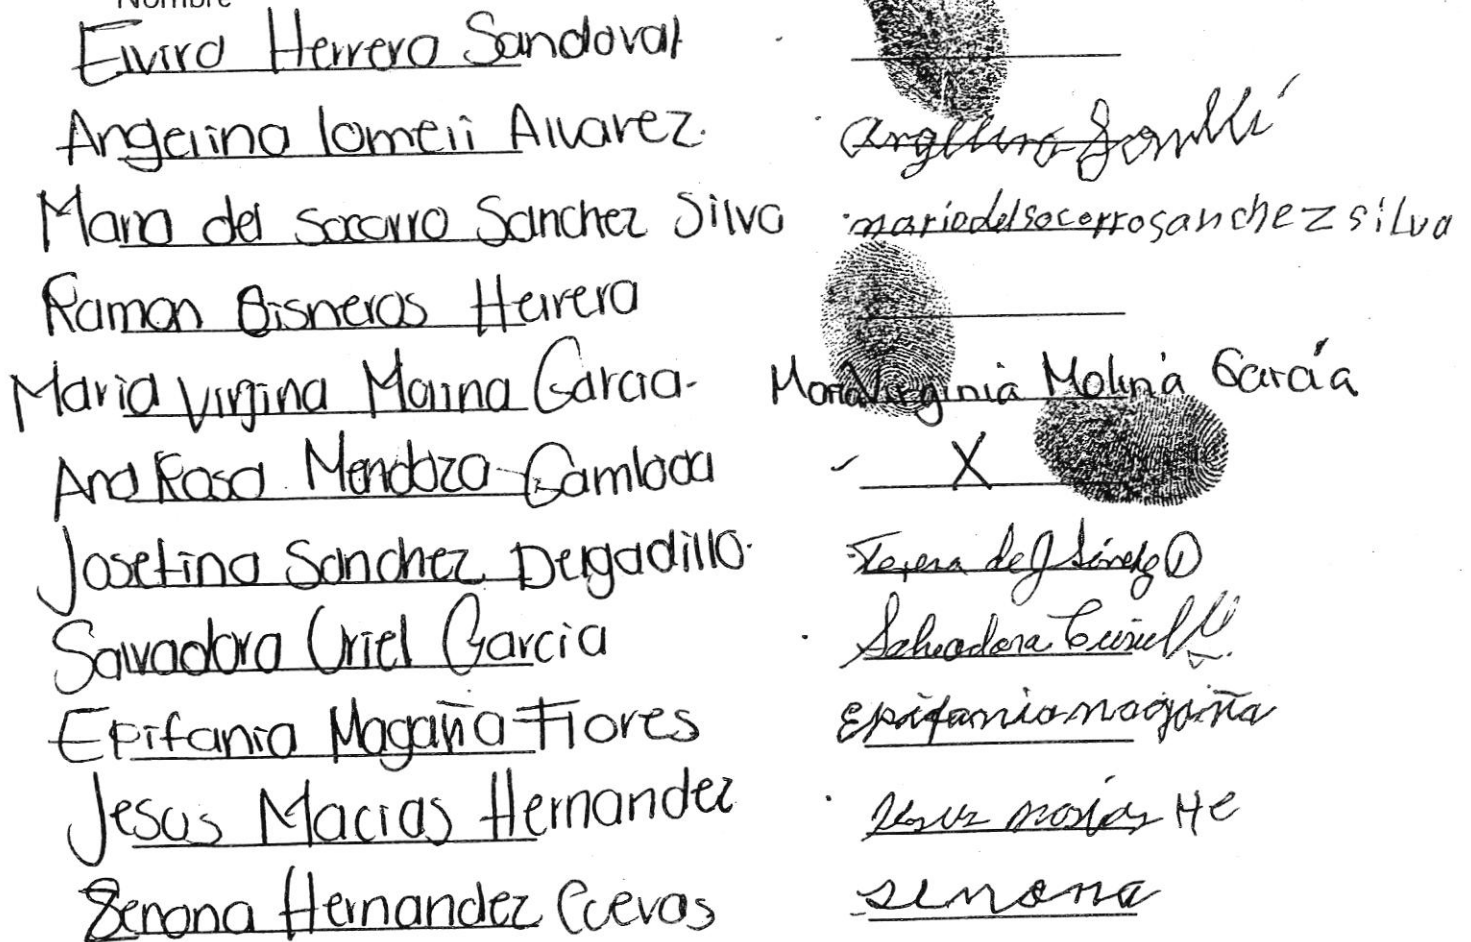 Nombre
Elvira Herrera Sandoval
Angelina lomeli Alvarez. Angelina Lomelí
Maria del socorro Sanchez Silva mariadelsocorrosanchez silva
Ramon Cisneros Herrera
Maria Virgina Molina Garcia. Maria Virginia Molina García
Ana Rosa Mendoza Gamboa X
Josefina Sanchez Delgadillo. Teresa de J Sánchez D
Salvadora Curiel Garcia Salvadora Curiel
Epifania Magaña Flores Epifania magaña
Jesus Macias Hernandez Jesus masias He
Zenona Hernandez Cuevas senona